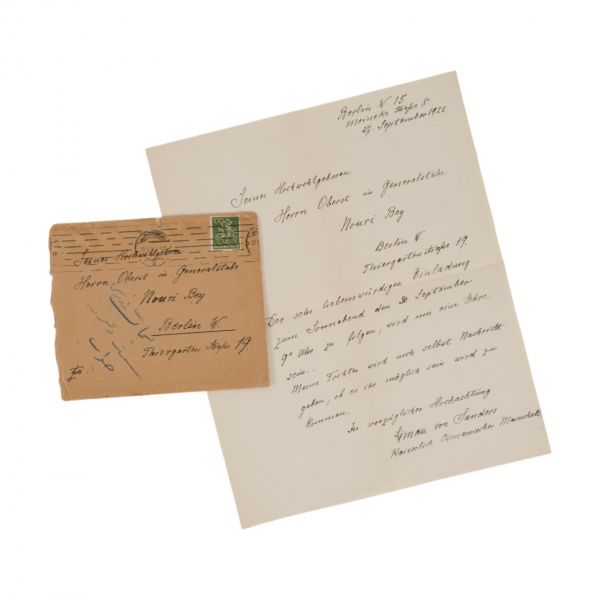 Berlin W 15
Meineke Straße 8
27. September 1922
Seiner Hochwohlgeboren
Herrn Oberst im Generalstabe
Nouri Bey
Berlin W.
Thiergartenstraße 19.
Der sehr liebenswürdigen Einladung
zum Sonnabend den 30 September
Uhr zu folgen, wird mir eine Ehre
sein.
Meine Tochter wird noch selbst Nachricht
geben, ob es ihr möglich sein wird zu
kommen.
In vorzüglicher Hochachtung
Liman von Sanders
Kaiserlich Osmanischer Marschall
Seiner Hochwohlgeboren
Herrn Oberst im Generalstabe
Nouri Bey
Berlin W.
Thiergarten Straße 19